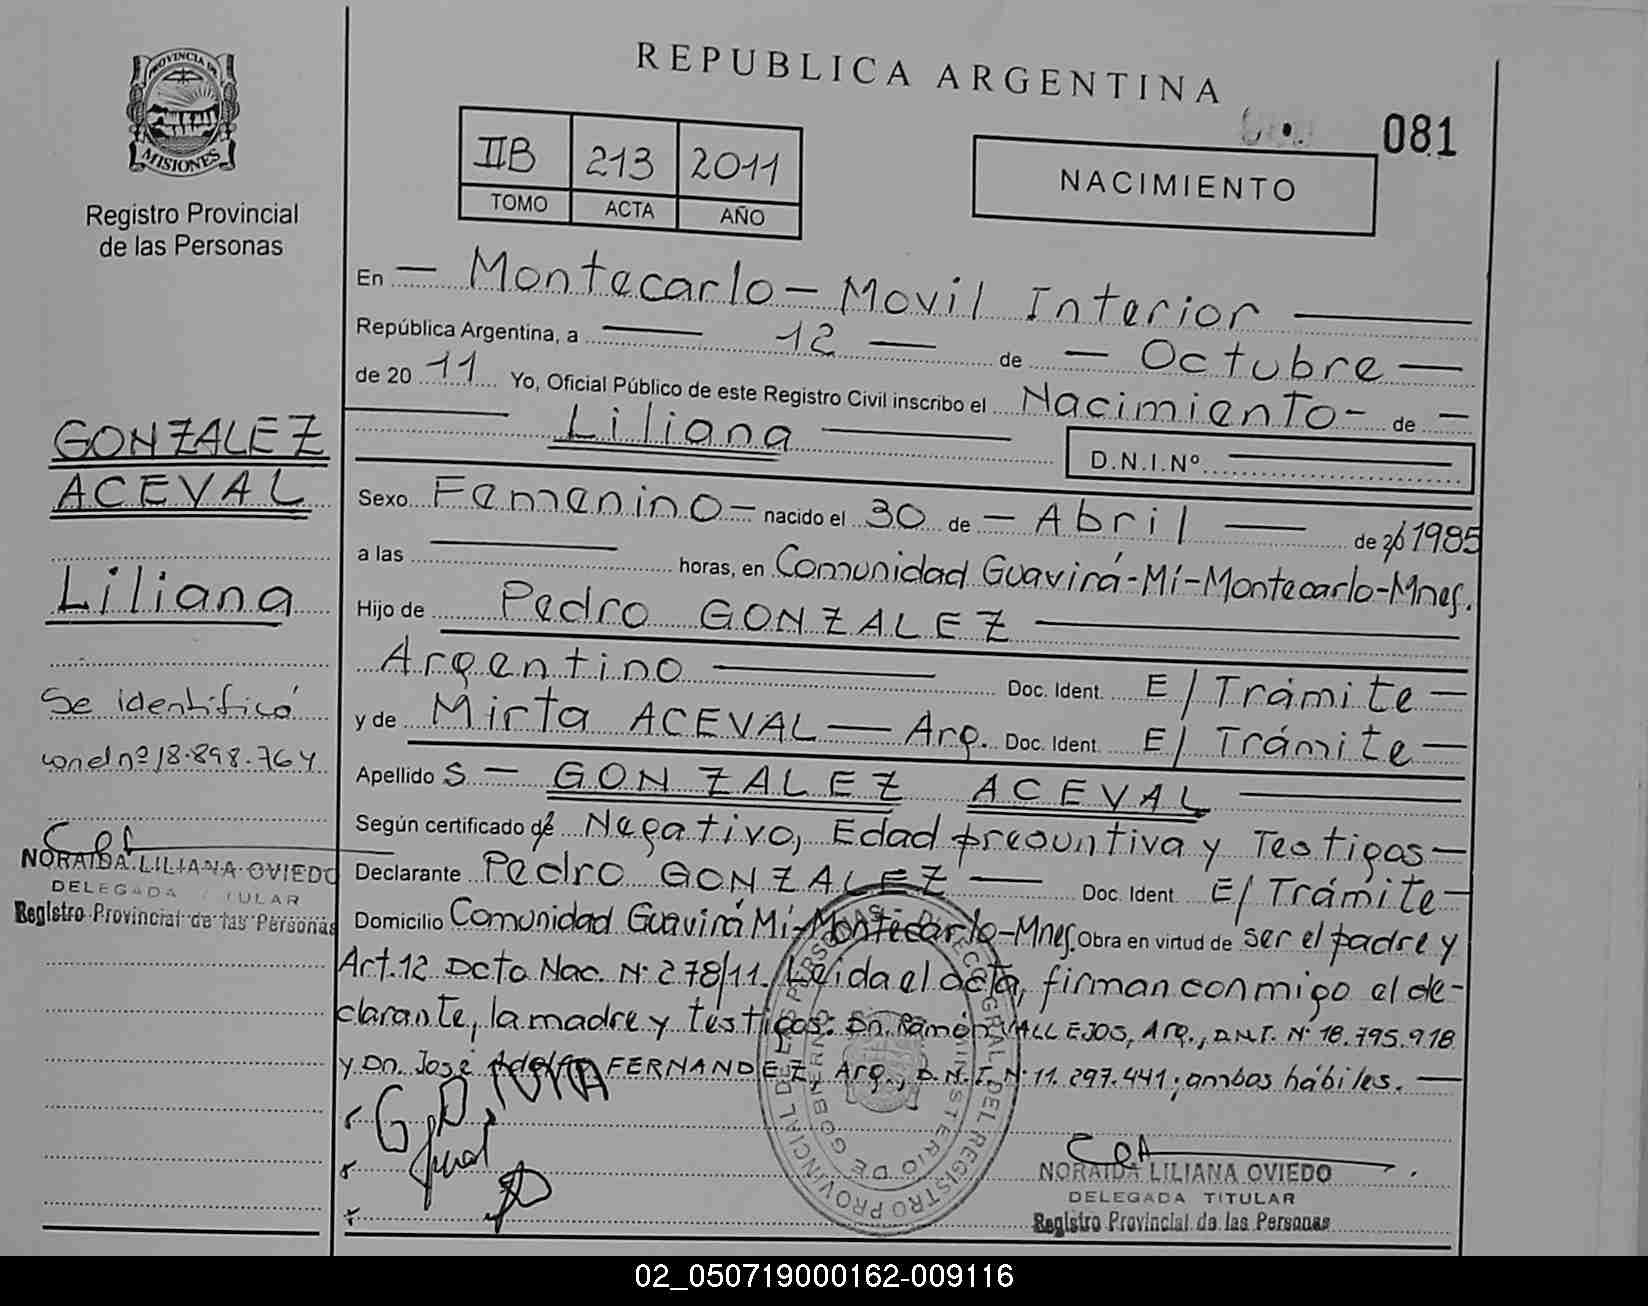 REPUBLICA ARGENTINA
081
PROVINCIA DE
MISIONES
Registro Provincial
de las Personas
IIB 213 2011
TOMO ACTA AÑO
NACIMIENTO
En — Montecarlo - Movil Interior —
República Argentina, a — 12 — de — Octubre —
de 20 11 Yo, Oficial Público de este Registro Civil inscribo el Nacimiento - de —
— Liliana —
D.N.I.Nº —
Sexo Femenino - nacido el 30 de - Abril — de 1985
a las — horas, en Comunidad Guavirá-Mí-Montecarlo-Mnes.
Hijo de Pedro GONZALEZ —
Argentino — Doc. Ident. E/Trámite —
y de Mirta ACEVAL — Arg. Doc. Ident. E/ Trámite —
Apellido s — GONZALEZ ACEVAL —
Según certificado de Negativo, Edad presuntiva y Testigos —
Declarante Pedro GONZALEZ — Doc. Ident. E/Trámite —
Domicilio Comunidad Guavirá Mí-Montecarlo-Mnes. Obra en virtud de ser el padre y
Art. 12 Dcto Nac. Nº 278/11. Leida el acta, firman conmigo el de-
clarante, la madre y testigos: Dn. Ramón VALLEJOS, Arg., D.N.I. Nº 18.795.918
y Dn. José Adolfo FERNANDEZ, Arg., D.N.I. Nº 11.297.441; ambos hábiles. —
GONZALEZ
ACEVAL
Liliana
Se identificó
con el nº 18.898.764
NORAIDA LILIANA OVIEDO
DELEGADA TITULAR
Registro Provincial de las Personas
DIREC. GRAL. DEL REGISTRO PROVINCIAL DE LAS PERSONAS
MINISTERIO DE GOBIERNO
NORAIDA LILIANA OVIEDO
DELEGADA TITULAR
Registro Provincial de las Personas
02_050719000162-009116